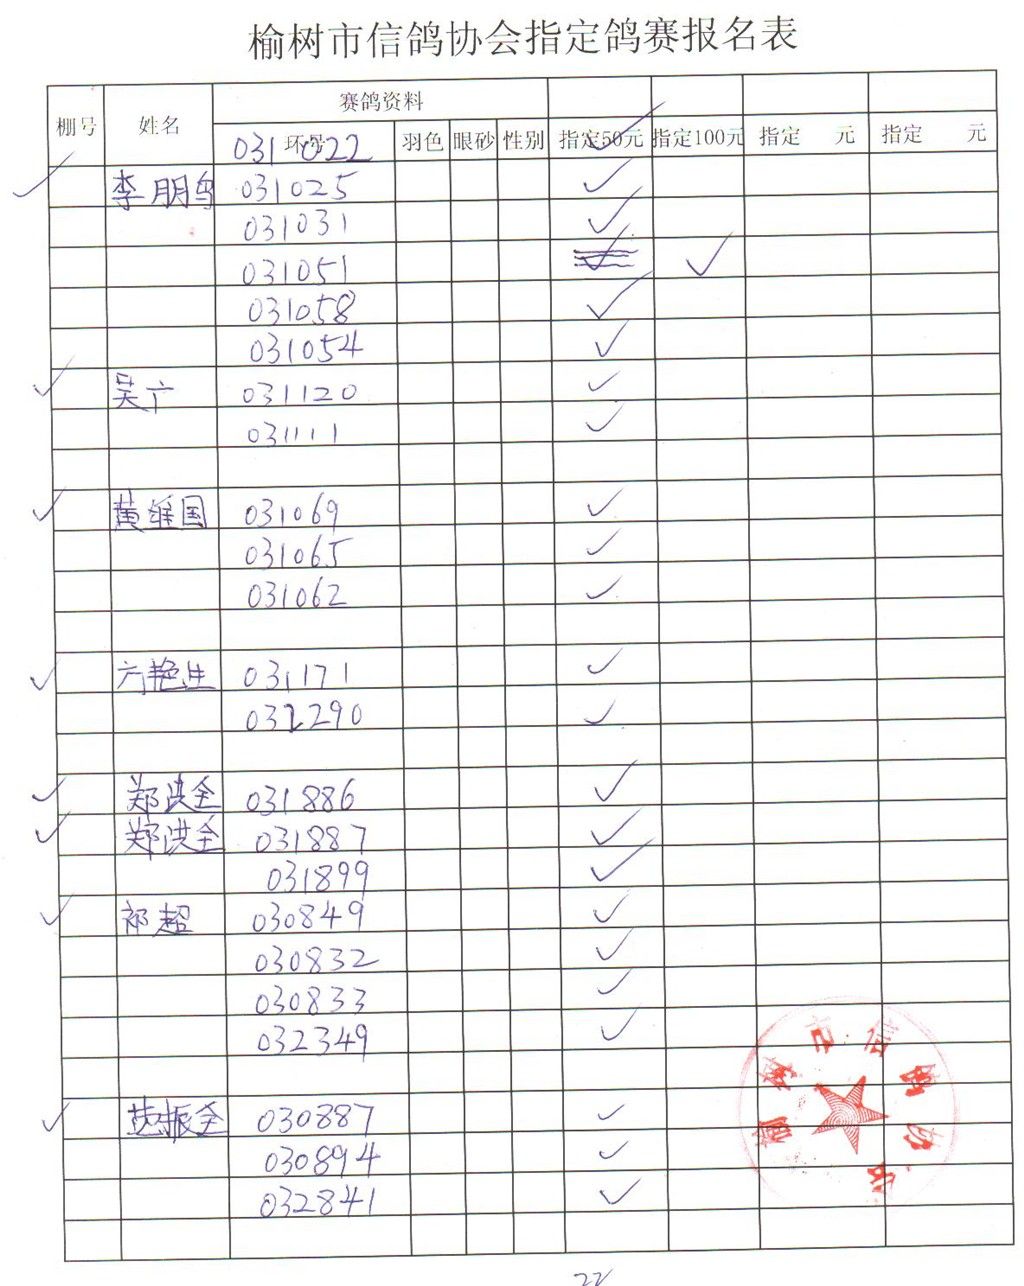 榆树市信鸽协会指定鸽赛报名表
赛鸽资料
棚号 姓名 环号 羽色 眼砂 性别 指定50元 指定100元 指定 元 指定 元
031022 ✓
✓ 李朋鸟 031025 ✓
031031 ✓
031051 ✓
031058 ✓
031054 ✓
✓ 吴亍 031120 ✓
031111 ✓
✓ 黄维国 031069 ✓
031065 ✓
031062 ✓
✓ 艳生 031171 ✓
032290 ✓
✓ 郑洪全 031886 ✓
✓ 郑洪全 031887 ✓
031899 ✓
✓ 祁超 030849 ✓
030832 ✓
030833 ✓
032349 ✓
✓ 振全 030887 ✓
030894 ✓
032841 ✓
榆树市信鸽协会
22